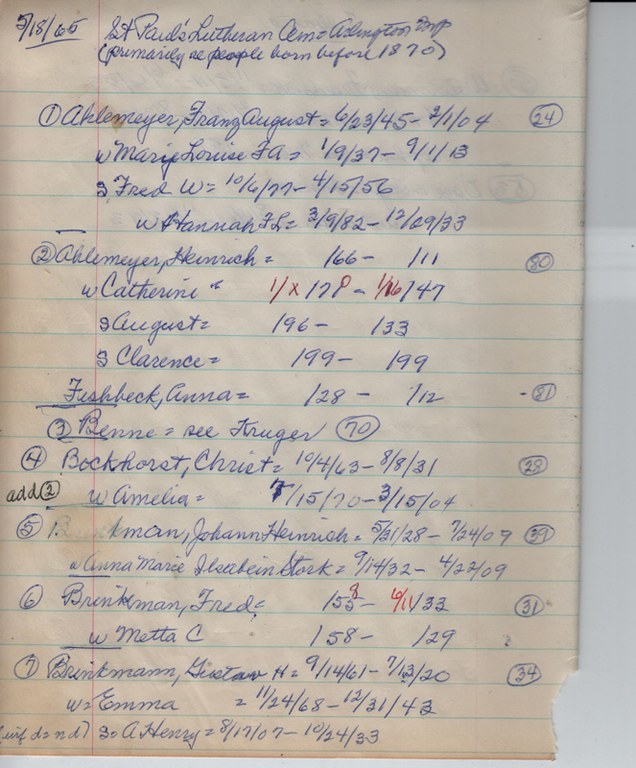 5/18/65 St Paul's Lutheran Cem = Adington Twp
(primarily as people born before 1870)
① Ahlemeyer, Franz August = 6/23/45 - 2/1/04 ㉔
w Marie Louise FA = 1/9/37 - 9/1/13
s Fred W = 10/6/77 - 4/15/56
w Hannah FL = 3/9/82 - 12/09/33
② Ahlemeyer, Heinrich = 166 - /11 80
w Catherine " 1/x /78 - 1/16/47
s August = 196 - 133
s Clarence = 199 - 199
Fishbeck, Anna = /28 - /12 - 81
③ Benne = see Kruger 70
④ Bockhorst, Christ = 10/4/63 - 8/8/31 28
add ② w Amelia = 7/15/70 - 3/15/04
⑤ Brinkman, Johann Heinrich = 5/31/28 - 7/24/07 39
w Anna Marie Ilsabein Stork = 9/14/32 - 4/22/09
⑥ Brinkman, Fred = 158 - 6/11/33 31
w Metta C /58 - /29
⑦ Brinkmann, Gustav H = 9/14/61 - 7/13/20 34
w = Emma = 11/24/68 - 12/31/43
(inf d = nd) s = A Henry = 8/17/07 - 10/24/33